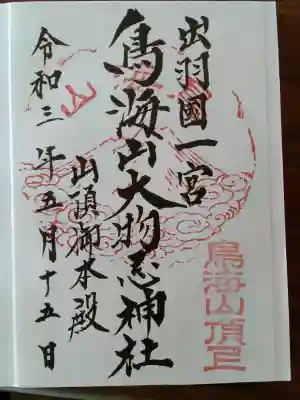 出羽國一宮
鳥海山大物忌神社
山頂御本殿
令和三年五月十五日
鳥海山頂
山